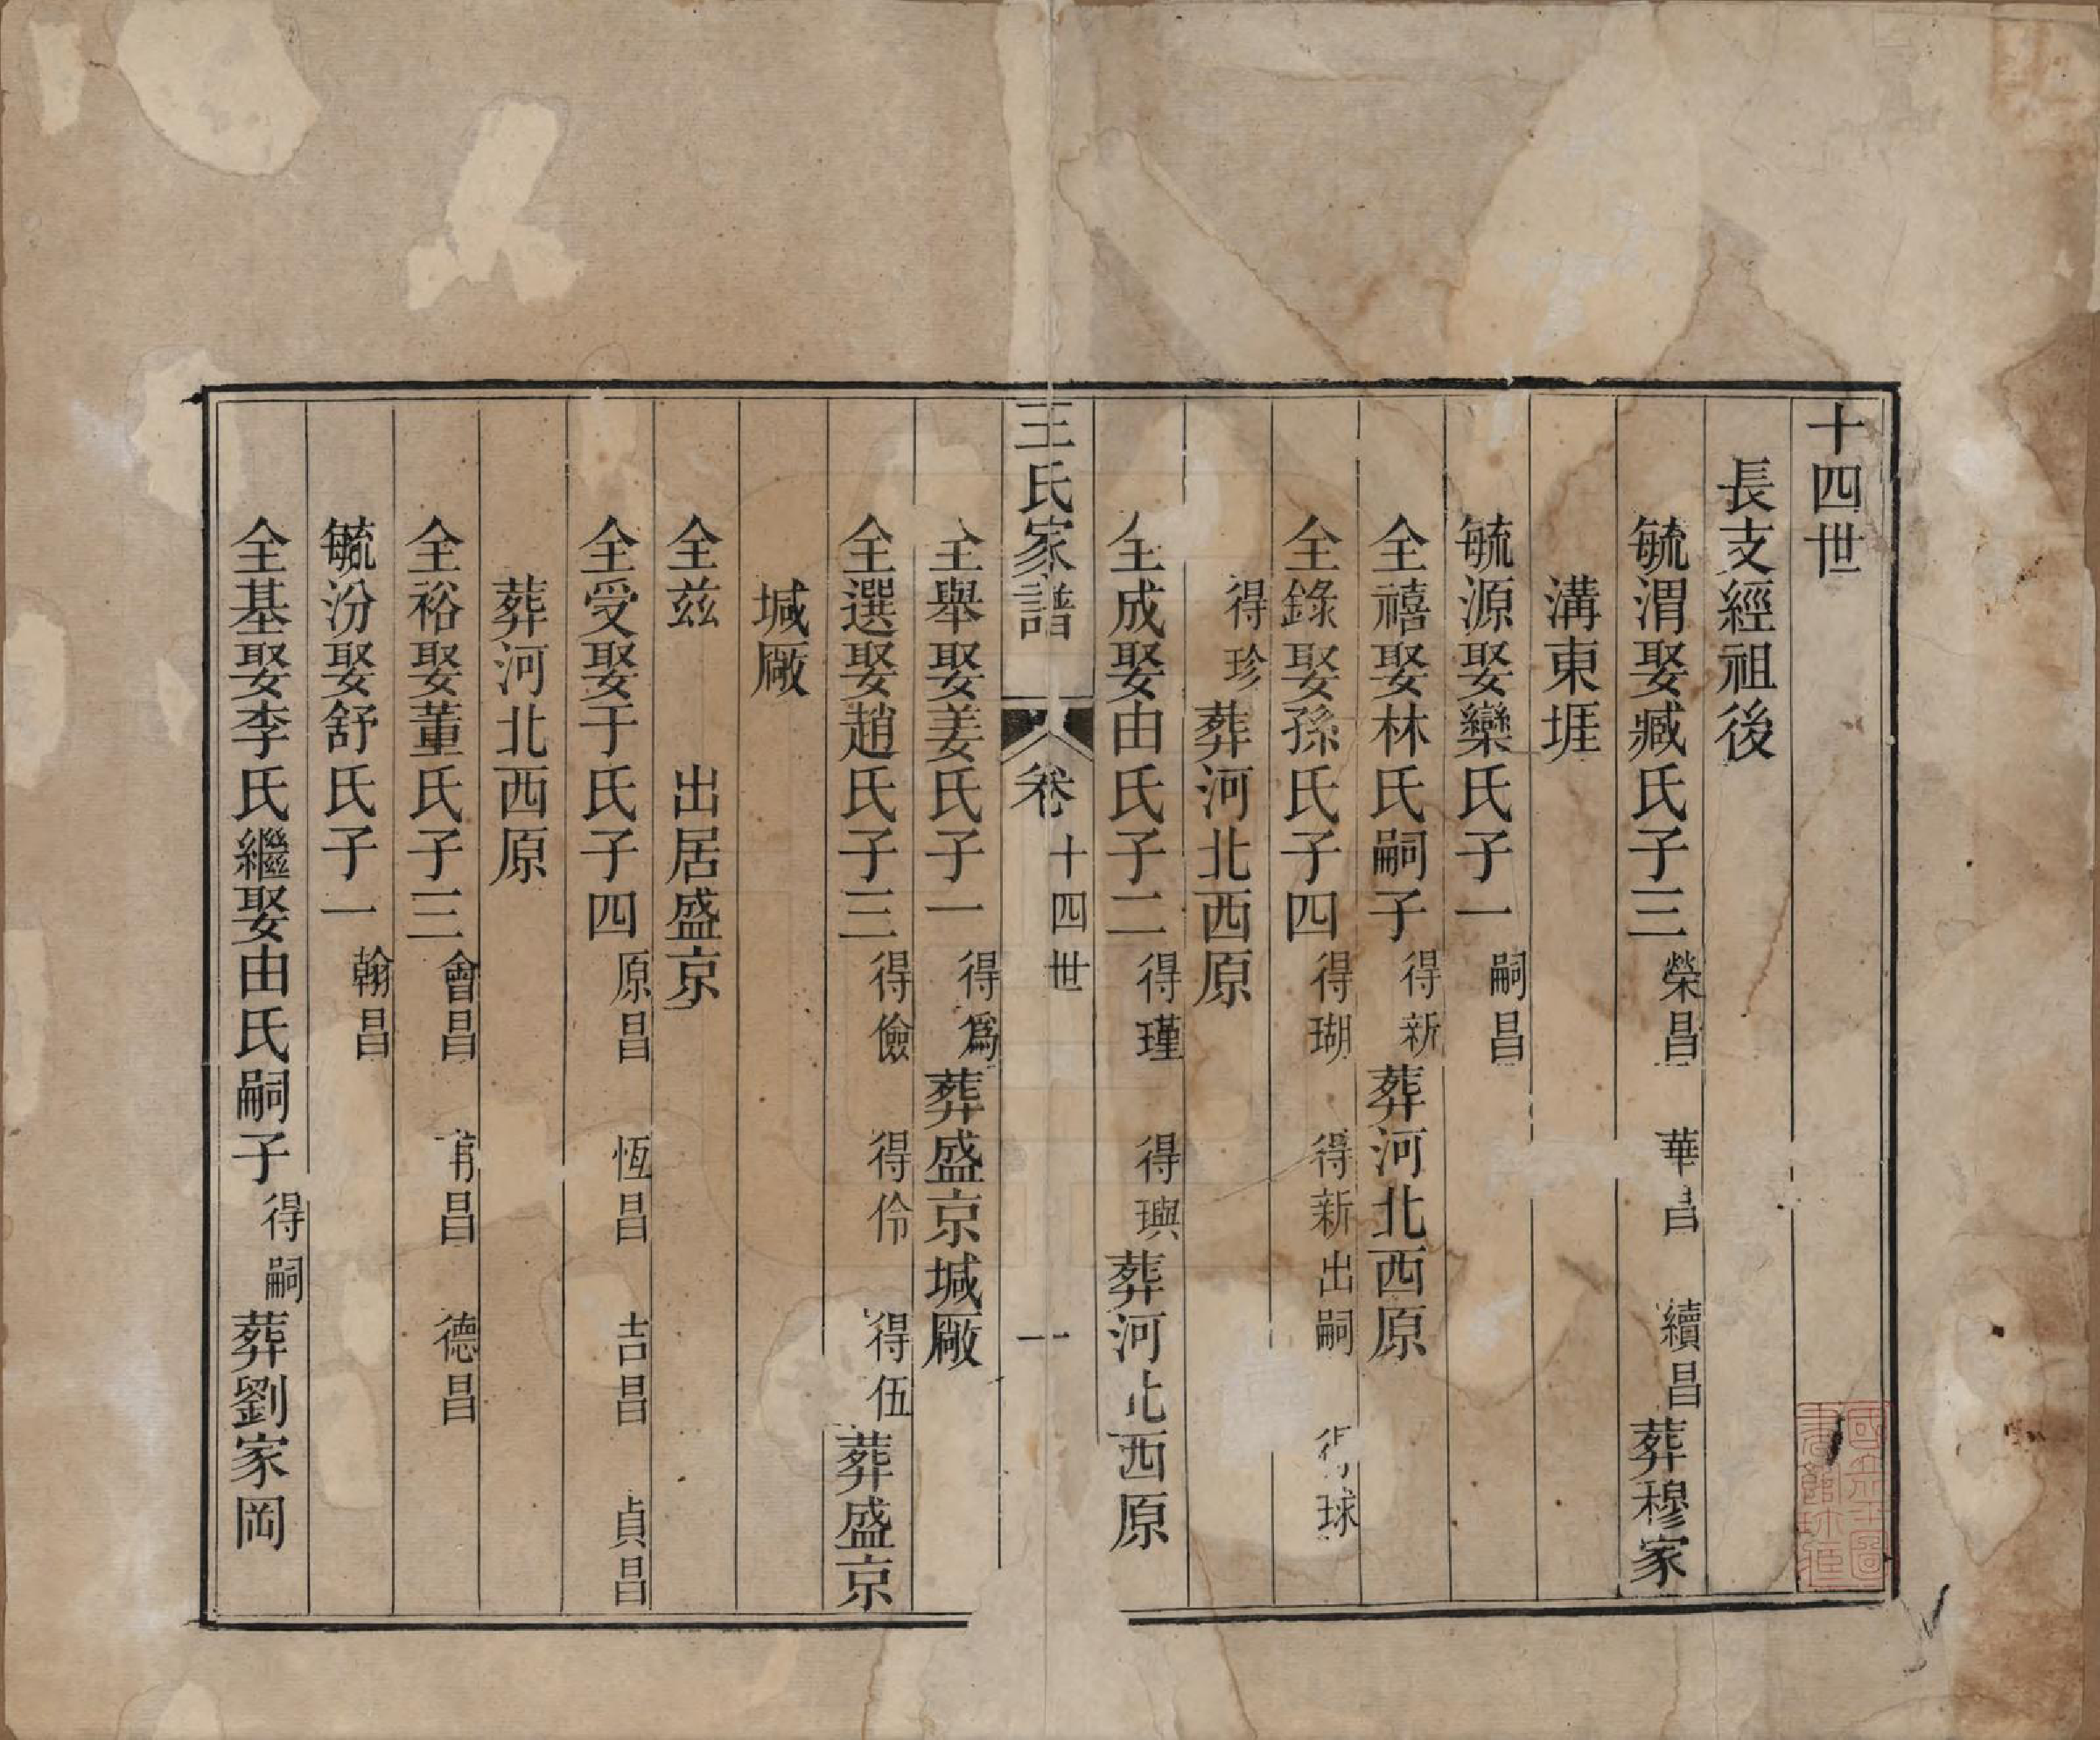 十四世
長支經祖後
毓渭娶臧氏子三榮昌 華昌 續昌葬穆家
溝東堐
毓源娶欒氏子一嗣昌
全禧娶林氏嗣子得新葬河北西原
全錄娶孫氏子四得瑚 得新出嗣 得球
得珍葬河北西原
全成娶由氏子二得瑾 得璵葬河北西原
王氏家譜 卷 十四世 一
全舉娶姜氏子一得爲葬盛京堿廠
全選娶趙氏子三得儉 得伶 得伍葬盛京
堿廠
全兹 出居盛京
全受娶于氏子四原昌 恆昌 吉昌 貞昌
葬河北西原
全裕娶董氏子三會昌 昌 德昌
毓汾娶舒氏子一翰昌
全基娶李氏繼娶由氏嗣子得嗣葬劉家岡
國立北平圖書館珍藏